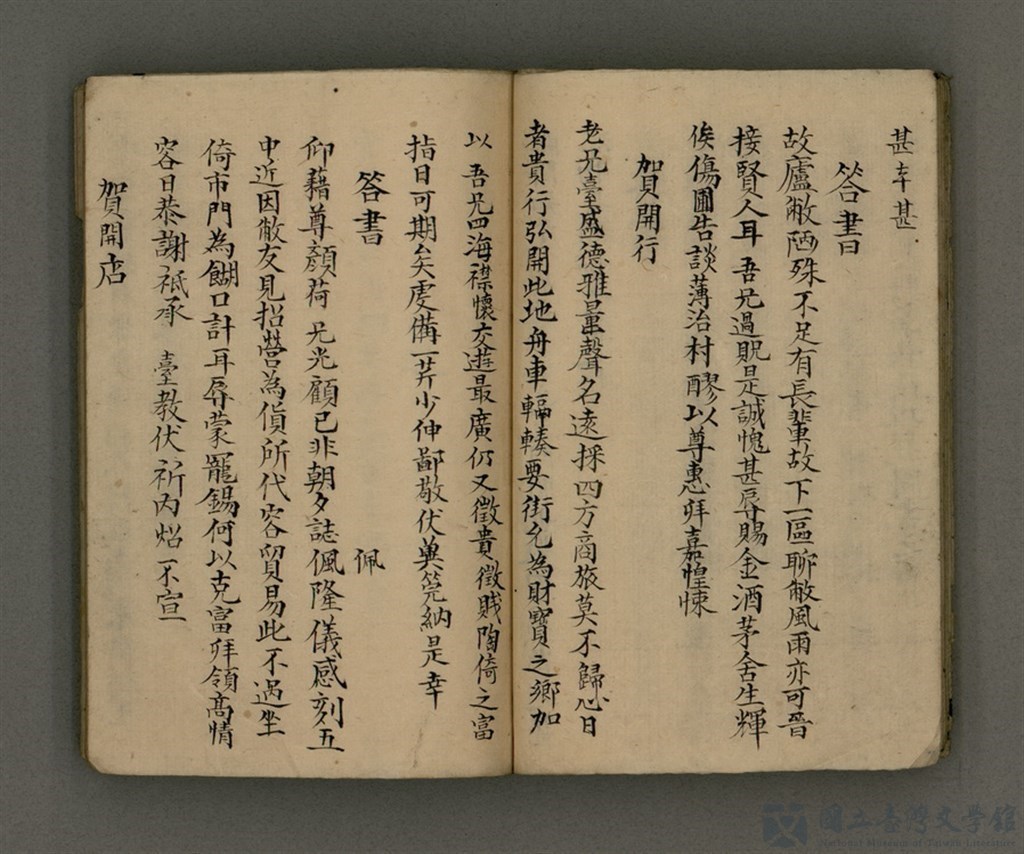 甚幸甚
答書
故廬敝陋殊不足有長輩故下一區聊敝風雨亦可晉
接賢人耳 吾兄過貺是誠愧甚辱賜金酒茅舍生輝
俟傷圃告談薄治村醪以尊惠拜嘉惶悚
賀開行
老兄臺盛德雅量聲名遠採四方商旅莫不歸心日
者貴行弘開此地舟車輻輳要街允為財寶之鄉加
以 吾兄四海襟懷交遊最廣仍又徵貴徵賤陶倚之富
指日可期矣虔備一芹少伸鄙敬伏冀筦納是幸
答書
佩
仰藉尊顏荷 兄光顧已非朝夕誌佩隆儀感刻五
中近因敝友見招營為貨所代客貿易此不過坐
倚市門為餬口計耳辱蒙寵錫何以克富拜領高情
容日恭謝祗承 臺教伏祈丙炤不宣
賀開店
國立臺灣文學館
National Museum of Taiwan Literature